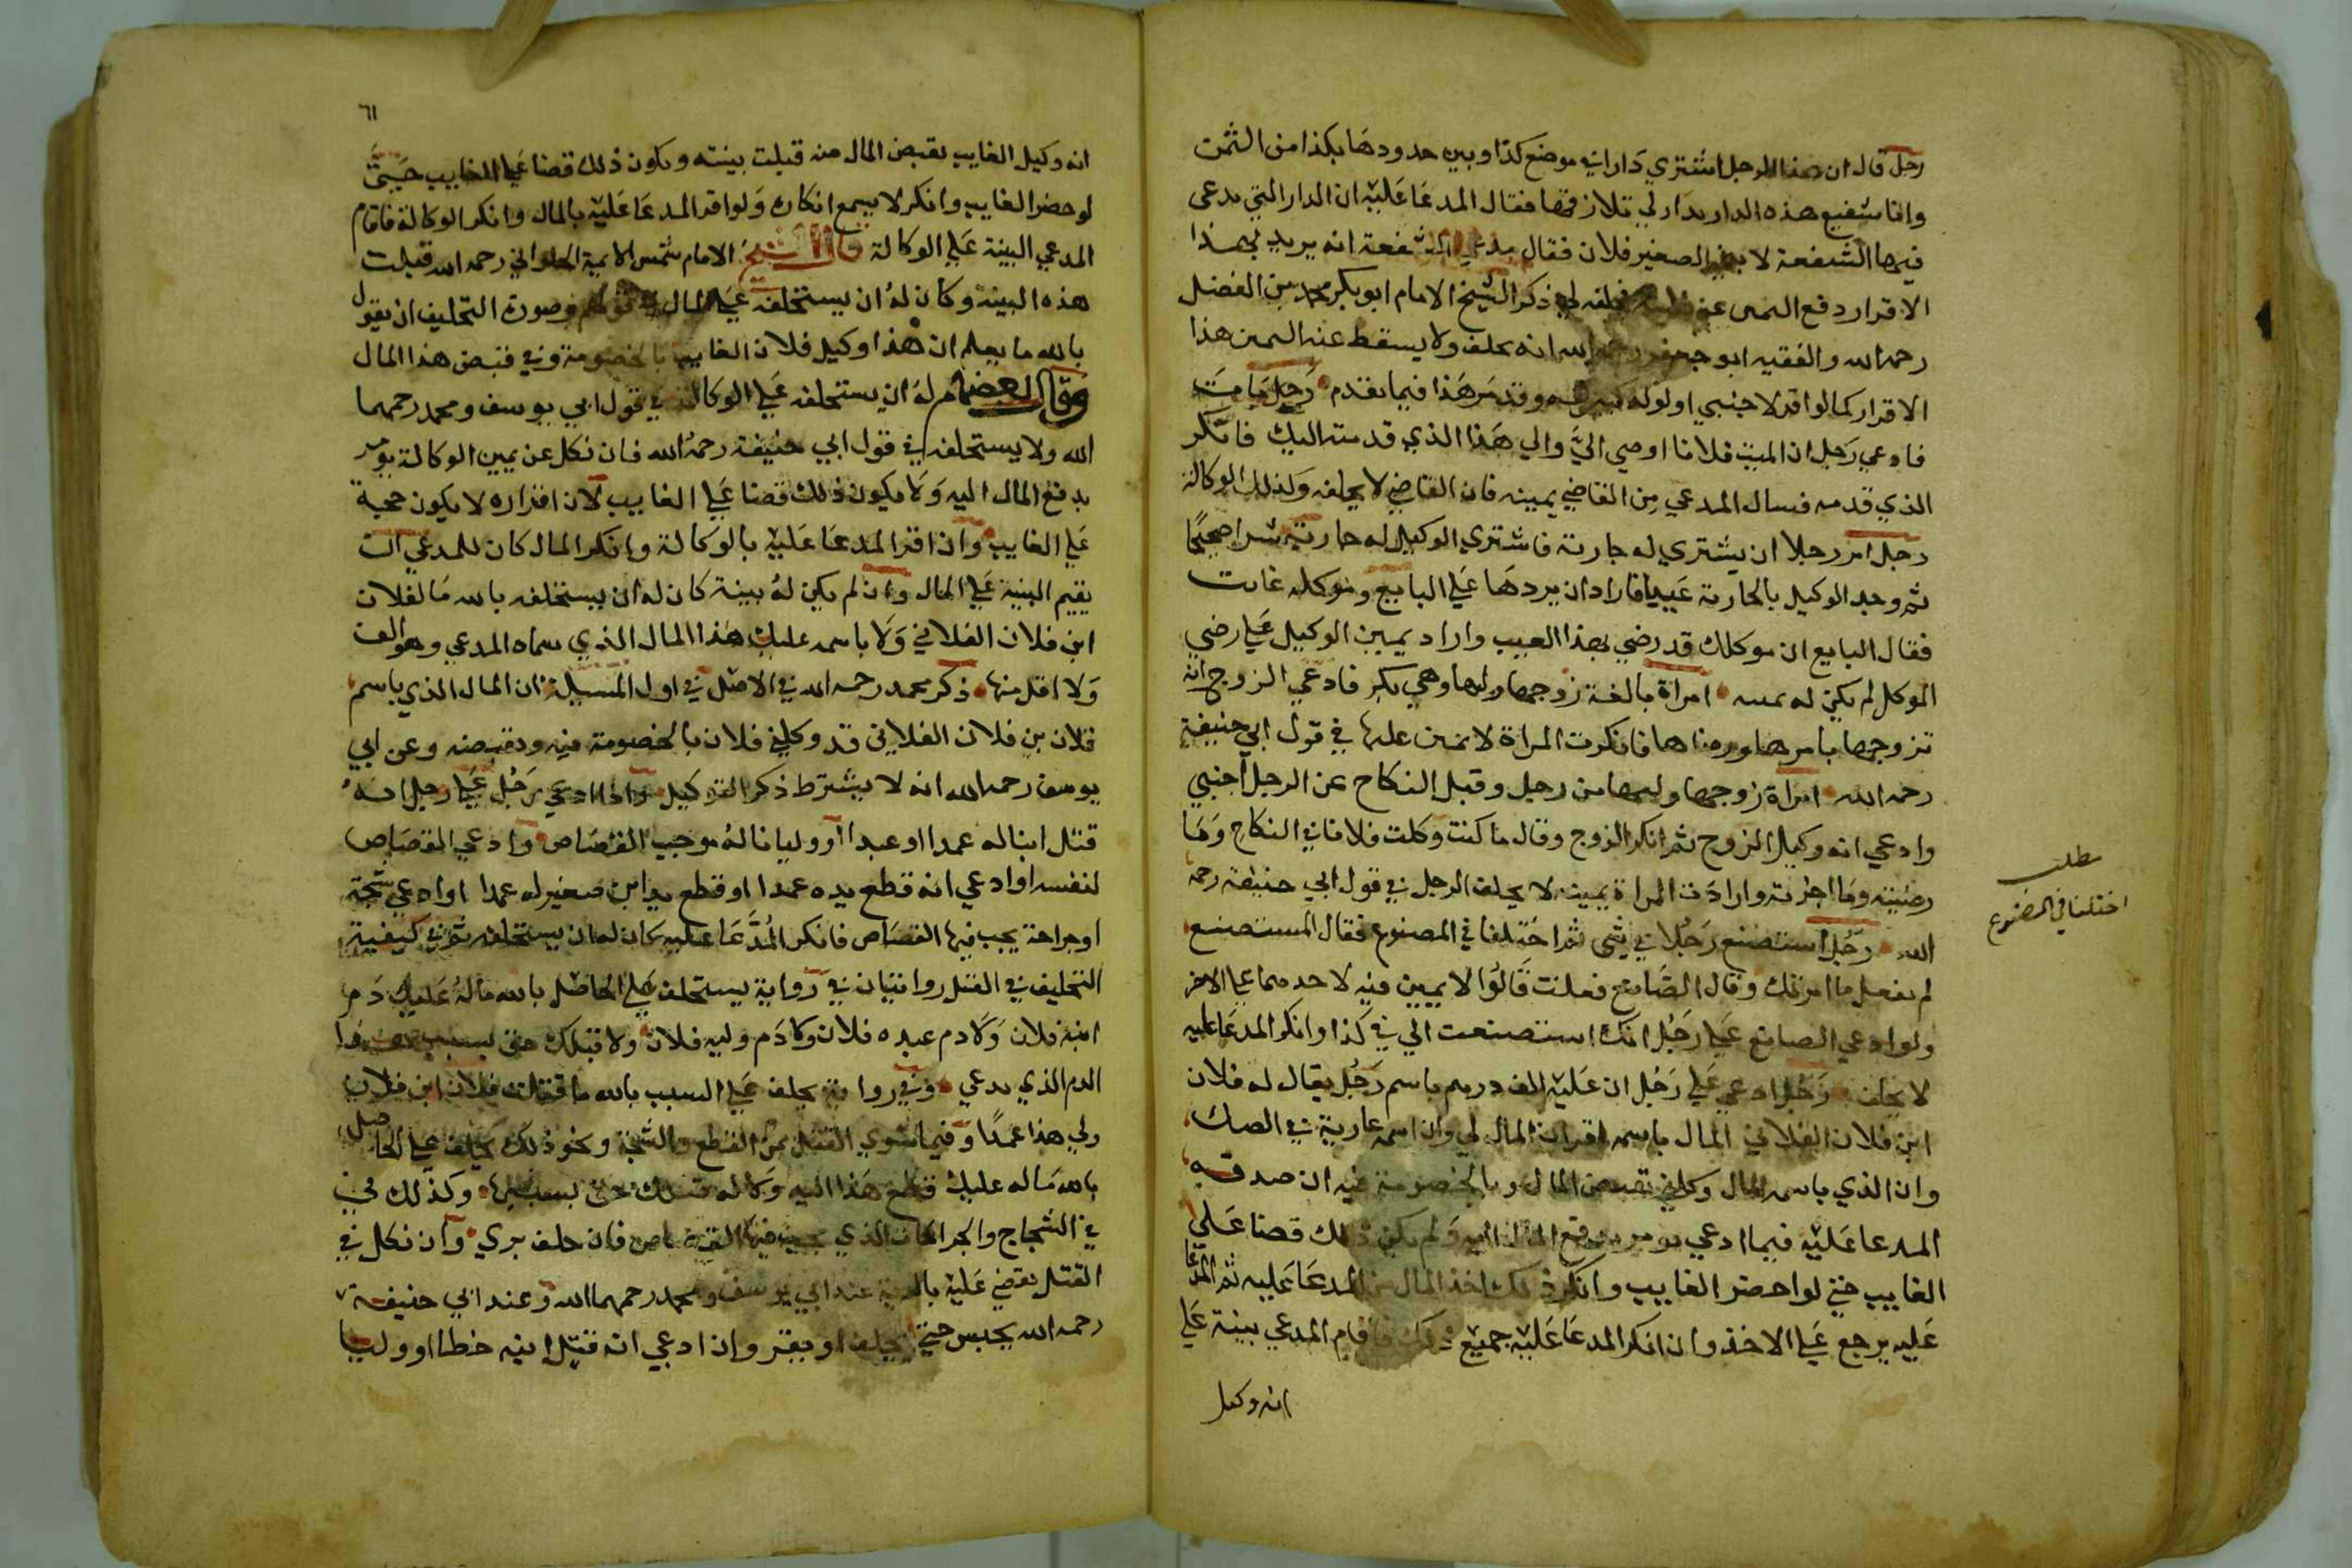 رجل قال ان هذا الرجل اشتري دارا في موضع كذا وبين حدودها بكذا من الثمن
وانا شفيع هذه الدار بدار لي تلازقها فقال المدعا عليه ان الدار التي يدعي
فيها الشفعة لابني الصغير فلان فقال مدعي الشفعة انه يريد بهذا
الاقرار دفع اليمين عن نفسه فحلفه لي ذكر الشيخ الامام ابو بكر محمد بن الفضل
رحمه الله والفقيه ابو جعفر رحمه الله انه يحلف ولا يسقط عنه اليمين هذا
الاقرار كما لو اقر لاجنبي او لولده وقد مر هذا فيما تقدم رجل مات
فادعي رجل ان الميت فلانا اوصي الي والي هذا الذي قدمته اليك فانكر
الذي قدمه فسال المدعي من القاضي يمينه فان القاضي لا يحلفه وكذلك الوكالة
رجل امر رجلا ان يشتري له جارية فاشتري الوكيل له جارية شراء صحيحا
ثم وجد الوكيل بالجارية عيبا فاراد ان يردها علي البايع وموكله غايب
فقال البايع ان موكلك قد رضي بهذا العيب واراد يمين الوكيل علي رضي
الموكل لم يكن له يمينه امراة بالغة زوجها وليها وهي بكر فادعي الزوج انه
تزوجها بامرها ورضاها فانكرت المراة لا يمين عليها في قول ابي حنيفة
رحمه الله امراة زوجها وليها من رجل وقبل النكاح عن الرجل اجنبي
وادعي انه وكيل الزوج ثم انكر الزوج وقال ما كنت وكلت فلانا في النكاح وما
رضيته وما اجزته وارادت المراة يمينه لا يحلف الرجل في قول ابي حنيفة رحمه
الله رجل استصنع رجلا في شي ثم اختلفا في المصنوع فقال المستصنع
لم تفعل ما امرتك وقال الصانع فعلت قالوا لا يمين فيه لاحدهما علي الاخر
ولو ادعي الصانع علي رجل انك استصنعت الي في كذا وانكر المدعا عليه
لا يحلف رجل ادعي علي رجل ان عليه الف درهم باسم رجل يقال له فلان
ابن فلان الفلاني المال باسمه اقر ان المال لي وان اسمه عارية في الصك
وان الذي باسمه المال وكلني بقبض المال وبالخصومة فيه ان صدقه
المدعا عليه فيما ادعي يومر بدفع المال اليه ولم يكن ذلك قضا علي
الغايب حتي لو احضر الغايب وانكر ذلك اخذ المال من المدعا عليه ثم المدعا
عليه يرجع علي الاخذ وان انكر المدعا عليه جميع ذلك فاقام المدعي بينة علي
انه وكيل
مطلب
اختلفا في المصنوع
٦١
انه وكيل الغايب بقبض المال منه قبلت بينته ويكون ذلك قضا علي الغايب حتي
لو حضر الغايب وانكر لا يسمع انكاره ولو اقر المدعا عليه بالمال وانكر الوكالة فاقام
المدعي البينة علي الوكالة قال الشيخ الامام شمس الايمة الحلواني رحمه الله قبلت
هذه البينة وكان له ان يستحلفه علي المال في قولهم وصورة التحليف ان يقول
بالله ما يعلم ان هذا وكيل فلان الغايب بالخصومة وفي قبض هذا المال
وقال بعضهم له ان يستحلفه علي الوكالة في قول ابي يوسف ومحمد رحمهما
الله ولا يستحلفه في قول ابي حنيفة رحمه الله فان نكل عن يمين الوكالة يومر
بدفع المال اليه ولا يكون ذلك قضا علي الغايب لان اقراره لا يكون حجة
علي الغايب وان اقر المدعا عليه بالوكالة وانكر المال كان للمدعي ان
يقيم البينة علي المال وان لم يكن له بينة كان له ان يستحلفه بالله ما لفلان
ابن فلان الفلاني ولا باسمه عليك هذا المال الذي سماه المدعي وهو الف
ولا اقل منها ذكر محمد رحمه الله في الاصل في اول المسيلة ان المال الذي باسم
فلان بن فلان الفلاني قد وكلني فلان بالخصومة فيه وبقبضه وعن ابي
يوسف رحمه الله انه لا يشترط ذكر التوكيل واذا ادعي رجل علي رجل انه
قتل ابنا له عمدا او عبدا او وليا فاله موجب القصاص وادعي القصاص
لنفسه او ادعي انه قطع يده عمدا او قطع يد ابن صغير له عمدا او ادعي شجة
او جراحة يجب فيها القصاص فانكر المدعا عليه كان له ان يستحلفه ثم في كيفية
التحليف في القتل روايتان في رواية يستحلف علي الحاصل بالله ما له عليك دم
ابنه فلان ولا دم عبده فلان ولا دم وليه فلان ولا قبلك حق بسبب هذا
الدم الذي يدعي وفي رواية يحلف علي السبب بالله ما قتلت فلان ابن فلان
ولي هذا عمدا وفيما سوي القتل من القطع والشجة ونحو ذلك يحلف علي الحاصل
بالله ما له عليك قطع هذا اليد ولا له قبلك حق بسببها وكذلك في
في الشجاج والجراحات الذي يجب فيها القصاص فان حلف بري وان نكل في
القتل يقضي عليه بالدية عند ابي يوسف ومحمد رحمهما الله وعند ابي حنيفة
رحمه الله يحبس حتي يحلف او يقر وان ادعي انه قتل ابنه خطا او وليا